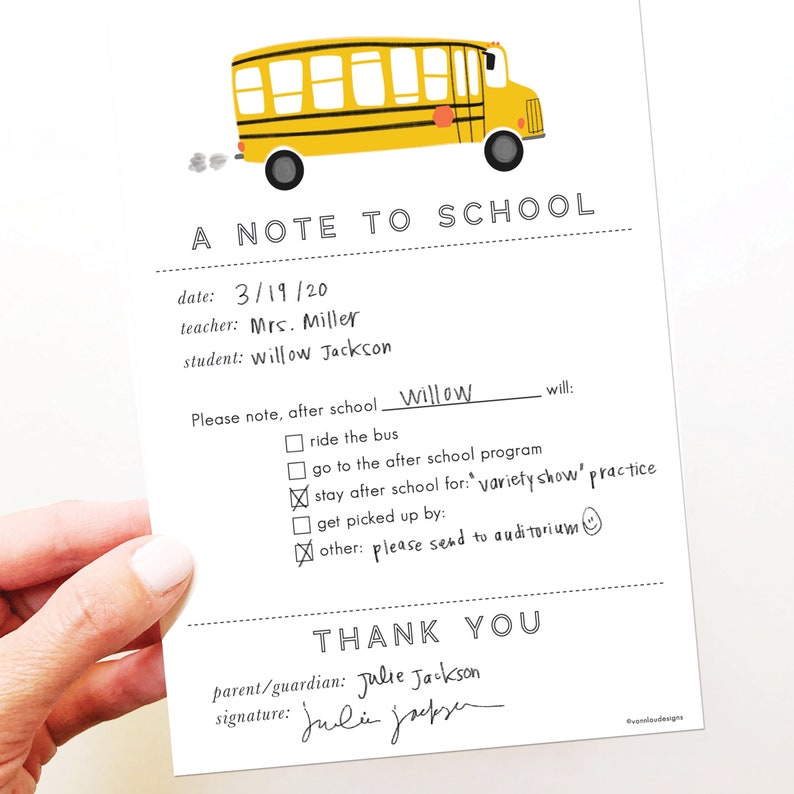 A NOTE TO SCHOOL
date: 3/19/20
teacher: Mrs. Miller
student: Willow Jackson
Please note, after school Willow will:
ride the bus
go to the after school program
stay after school for: "variety show" practice
get picked up by:
other: please send to auditorium
THANK YOU
parent/guardian: Julie Jackson
signature: Julie Jackson
©vannloudesigns